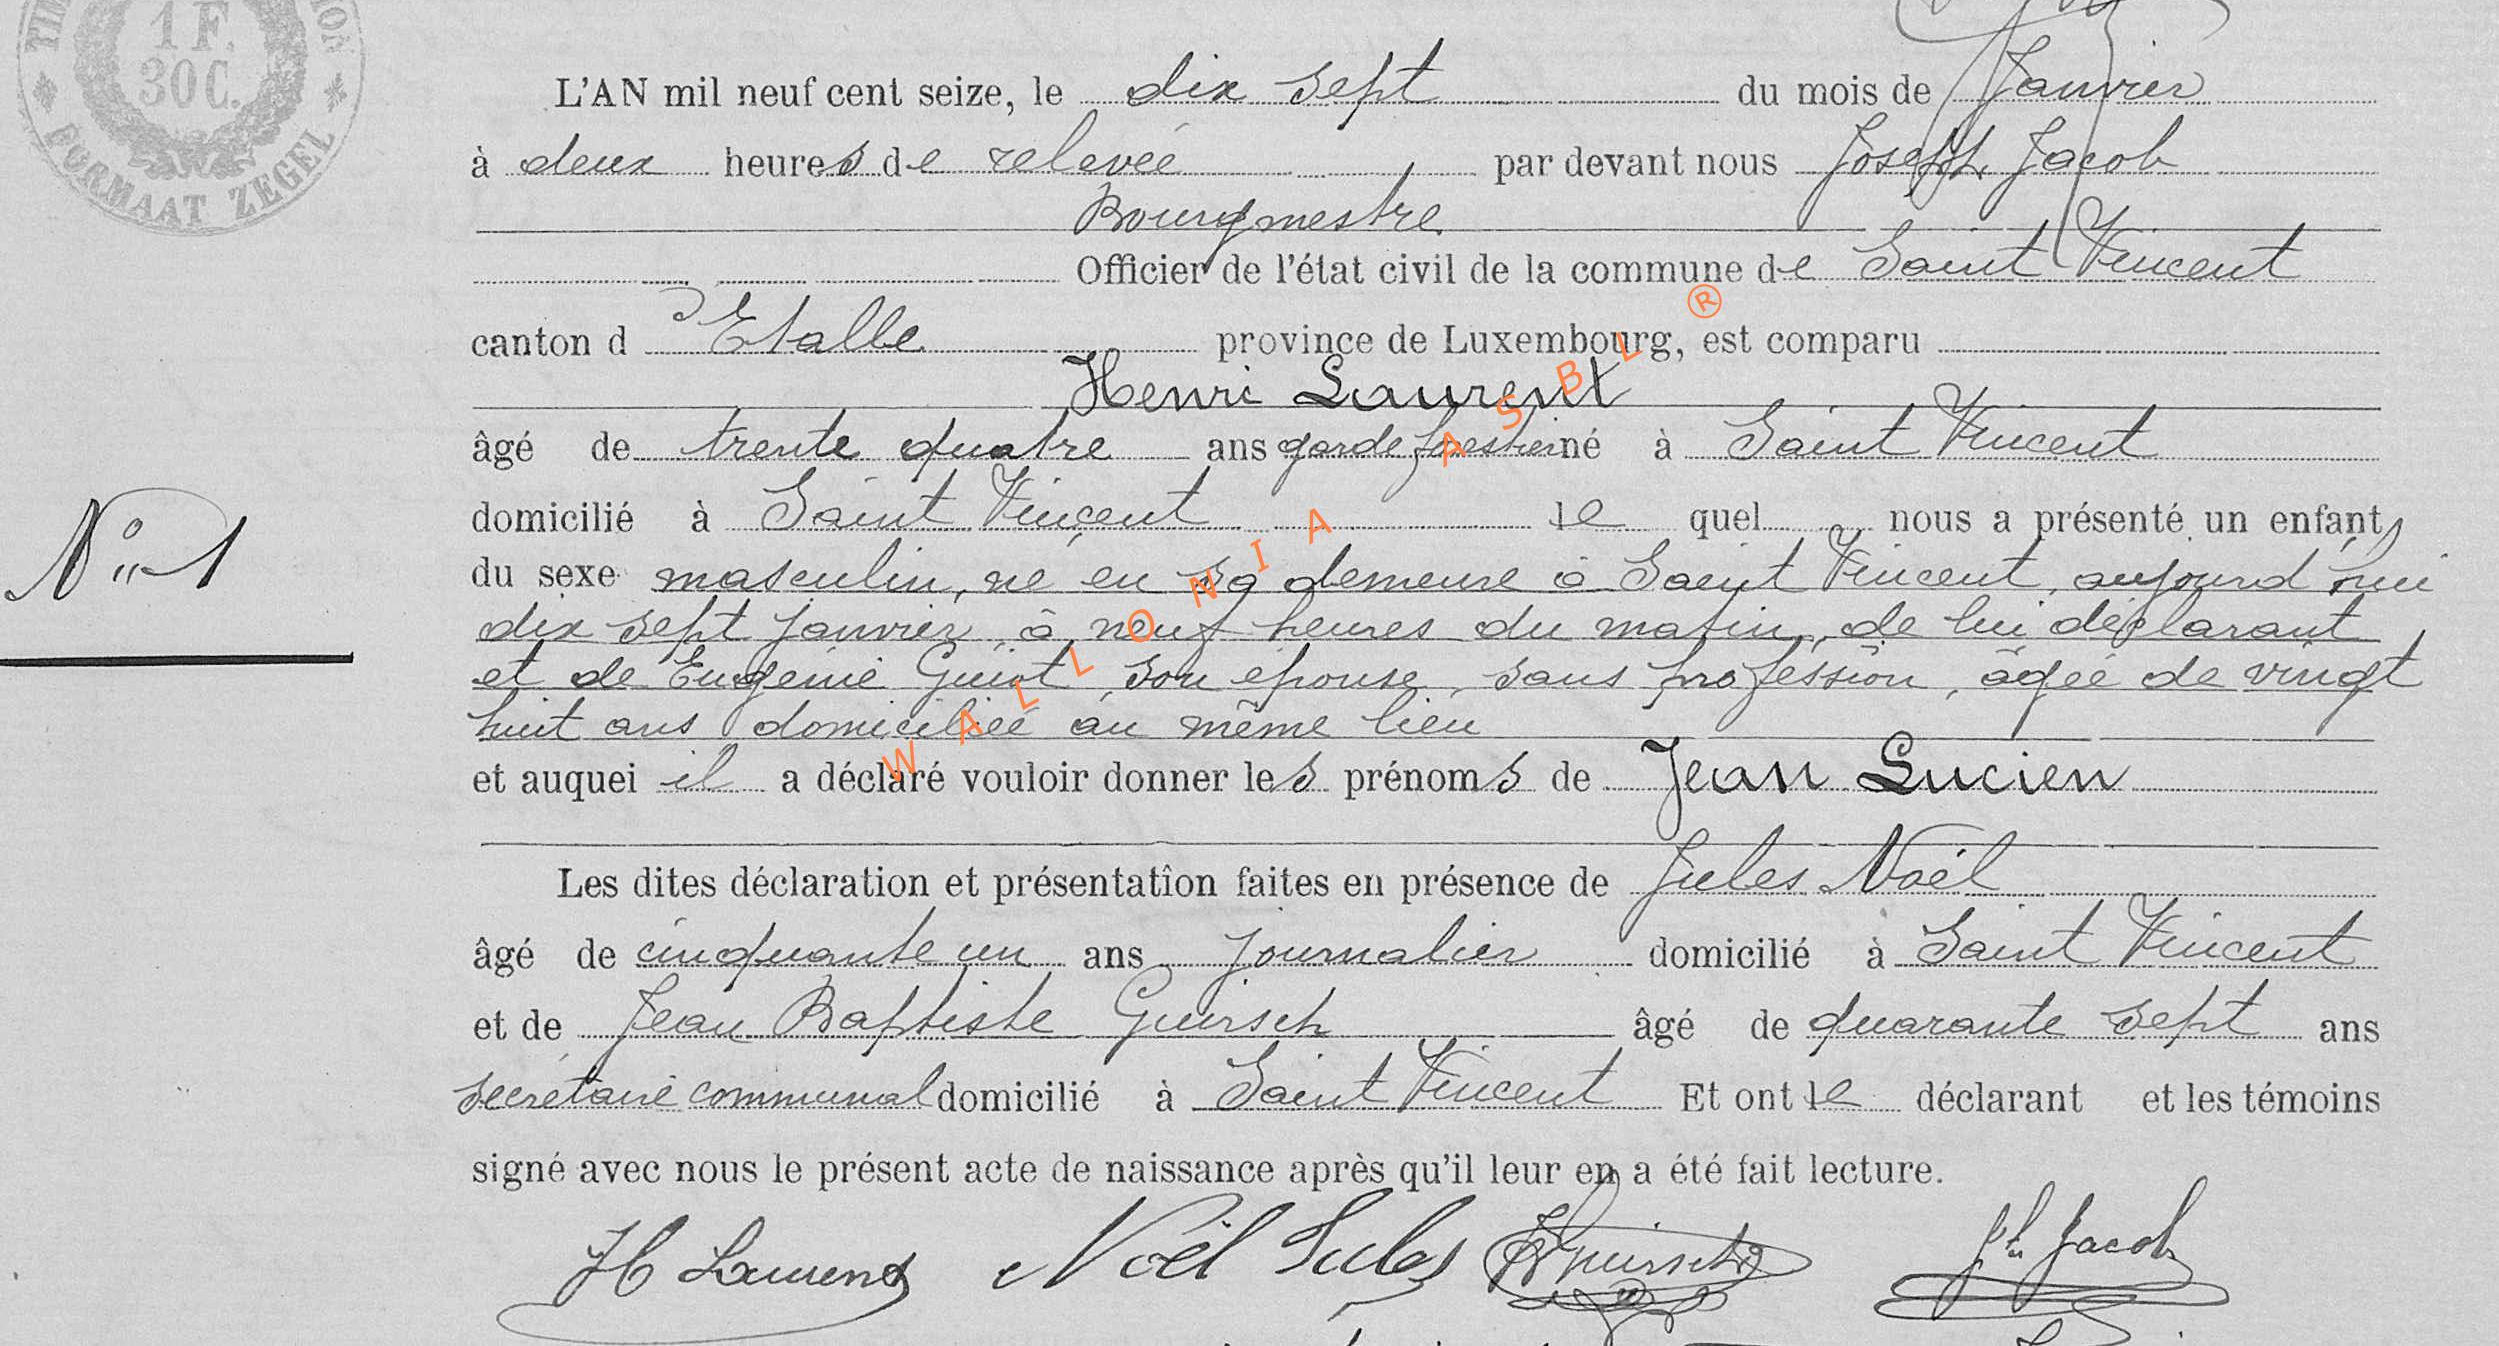 1 F.
30 C.
FORMAAT ZEGEL
L'AN mil neuf cent seize, le dix sept du mois de Janvier
à deux heures de relevée par devant nous Joseph Jacob
Bourgmestre
Officier de l'état civil de la commune de Saint Vincent
canton d'Etalle province de Luxembourg, est comparu
Henri Laurent
âgé de trente quatre ans garde forestier né à Saint Vincent
domicilié à Saint Vincent le quel nous a présenté un enfant
N° 1
du sexe masculin, né en sa demeure à Saint Vincent, aujourd'hui
dix sept janvier, à neuf heures du matin, de lui déclarant
et de Eugénie Guiot, son épouse, sans profession, âgée de vingt
huit ans domiciliée au même lieu
et auquel il a déclaré vouloir donner les prénoms de Jean Lucien
Les dites déclaration et présentation faites en présence de Jules Noël
âgé de cinquante un ans journalier domicilié à Saint Vincent
et de Jean Baptiste Guirsch âgé de quarante sept ans
secrétaire communal domicilié à Saint Vincent Et ont le déclarant et les témoins
signé avec nous le présent acte de naissance après qu'il leur en a été fait lecture.
H Laurent Noël Jules Guirsch Jh Jacob
WALLONIA ASBL ®